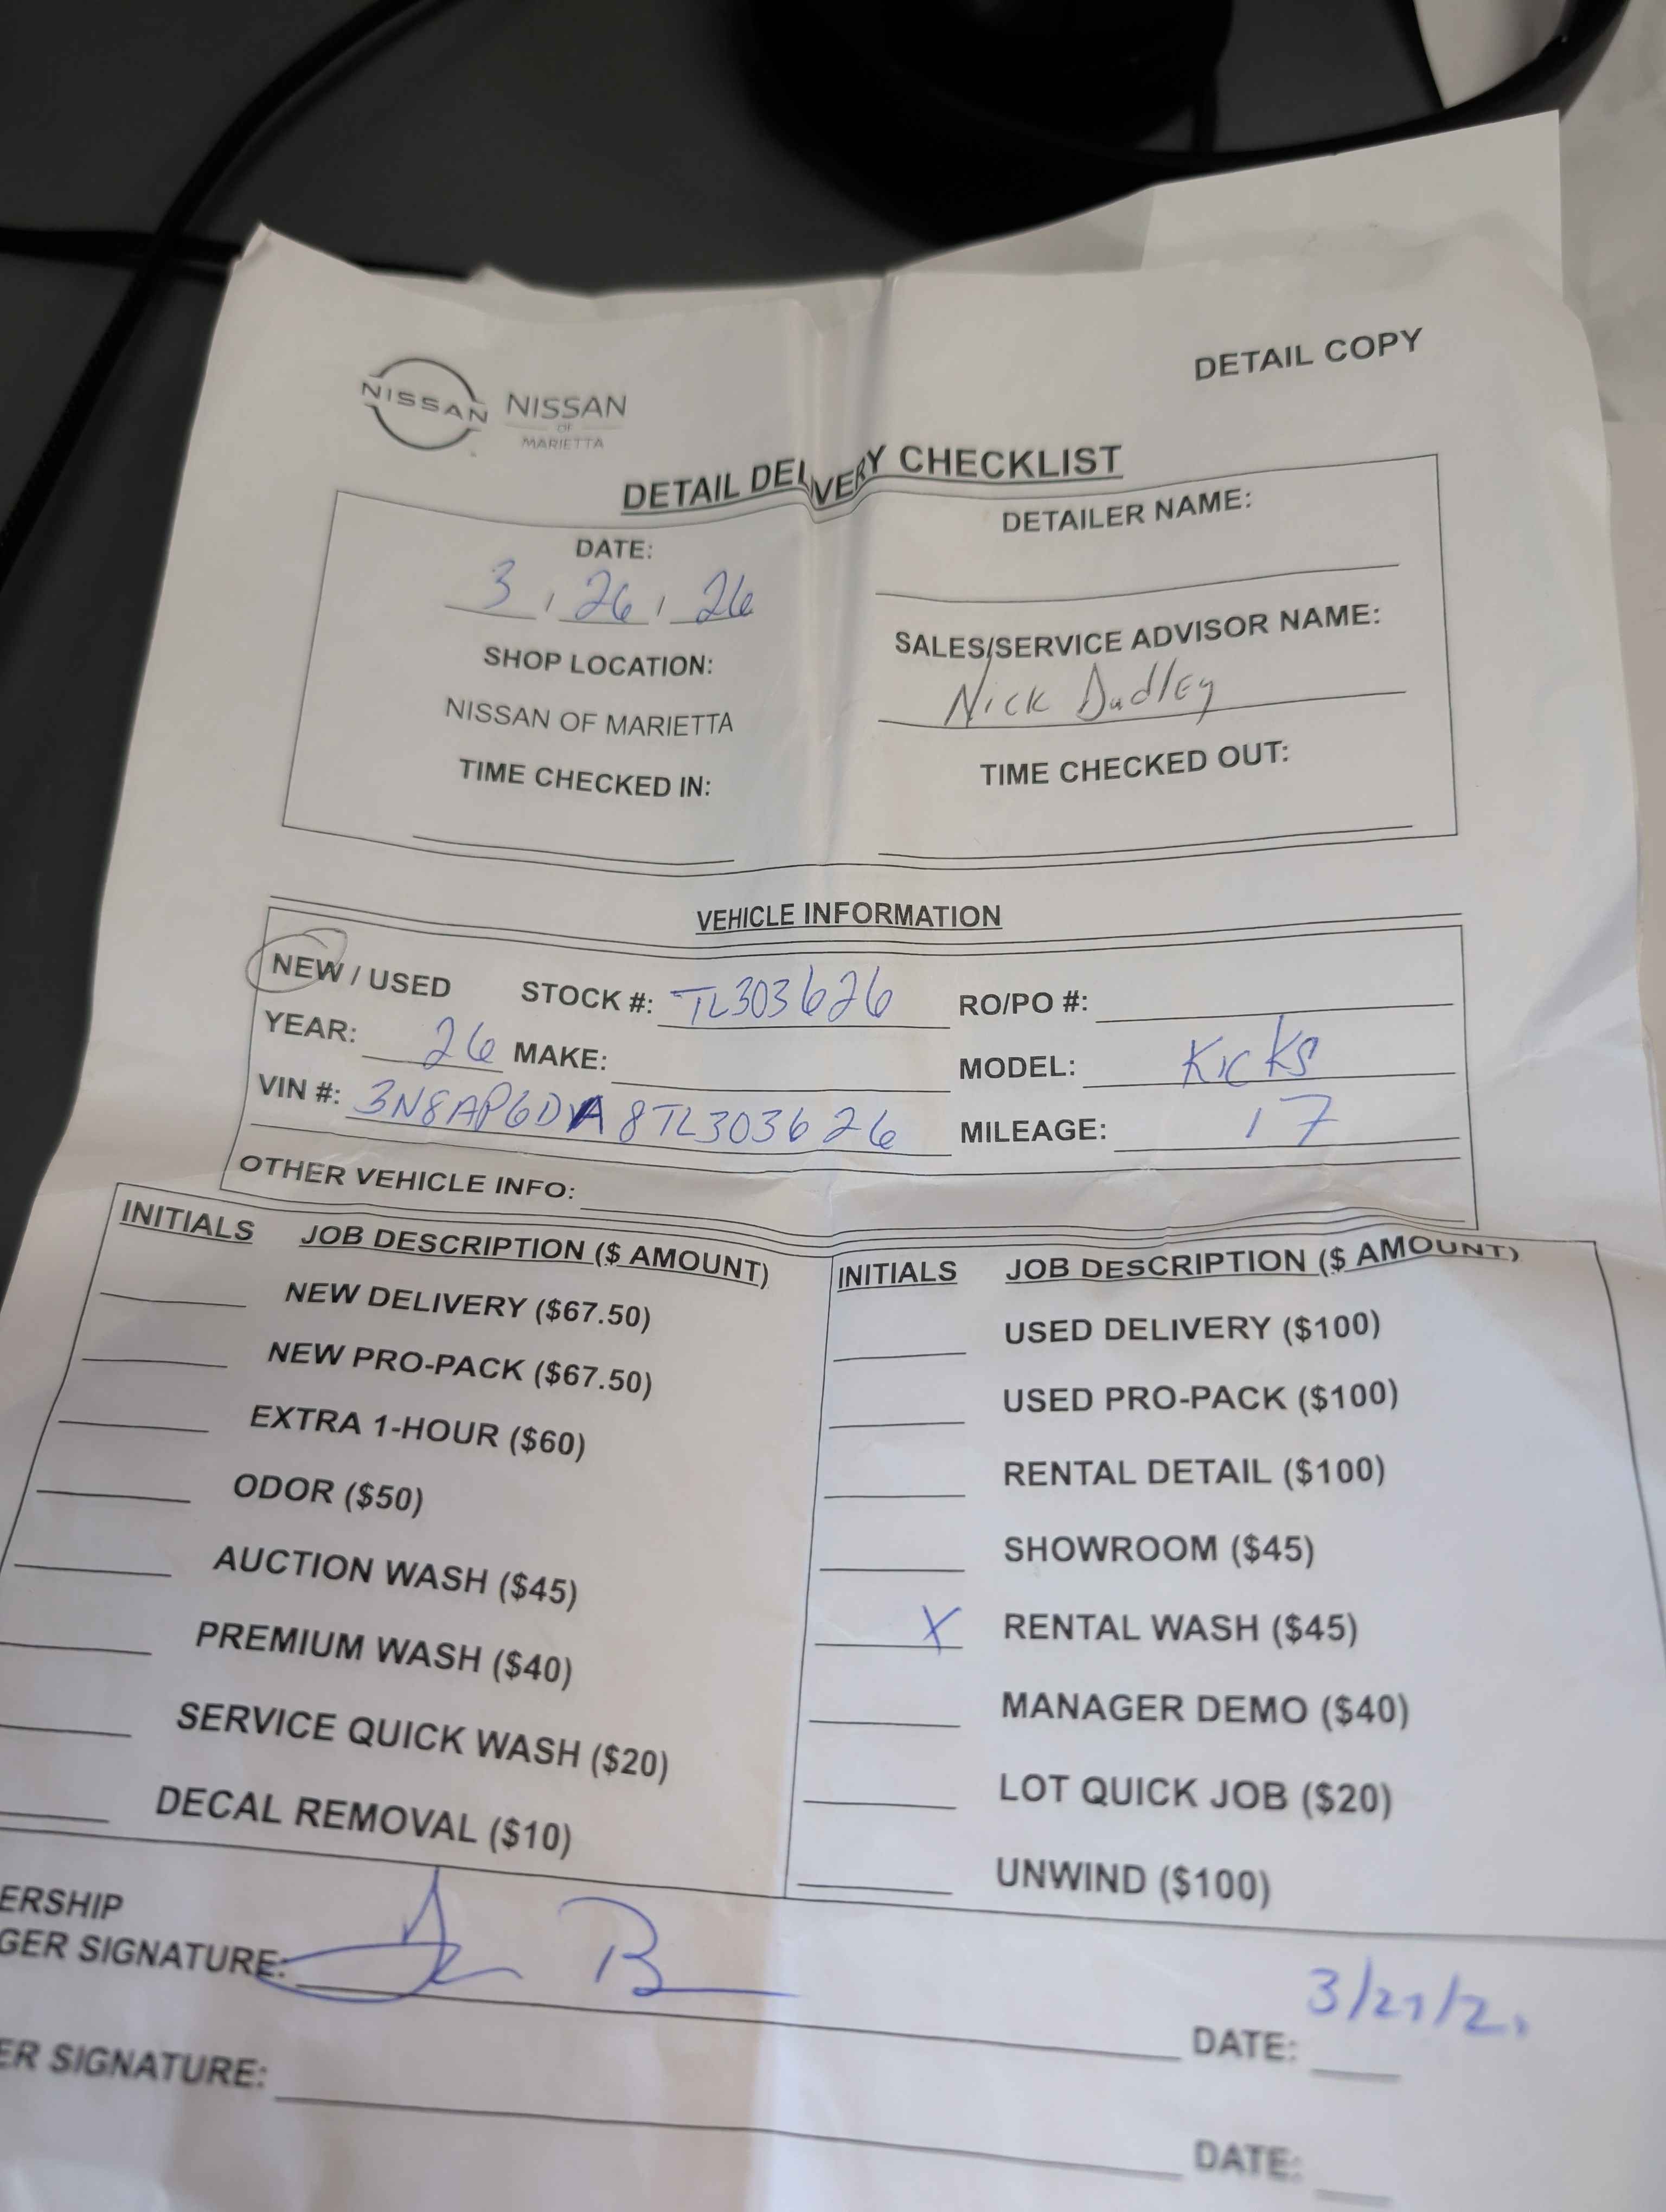 DETAIL COPY
NISSAN NISSAN
OF
MARIETTA
DETAIL DELIVERY CHECKLIST
DATE:
3 / 26 / 26
SHOP LOCATION:
NISSAN OF MARIETTA
TIME CHECKED IN:
DETAILER NAME:
SALES/SERVICE ADVISOR NAME:
Nick Dudley
TIME CHECKED OUT:
VEHICLE INFORMATION
NEW / USED STOCK #: TL303626 RO/PO #:
YEAR: 26 MAKE: MODEL: Kicks
VIN #: 3N8AP6DA8TL303626 MILEAGE: 17
OTHER VEHICLE INFO:
INITIALS JOB DESCRIPTION ($ AMOUNT)
NEW DELIVERY ($67.50)
NEW PRO-PACK ($67.50)
EXTRA 1-HOUR ($60)
ODOR ($50)
AUCTION WASH ($45)
PREMIUM WASH ($40)
SERVICE QUICK WASH ($20)
DECAL REMOVAL ($10)
INITIALS JOB DESCRIPTION ($ AMOUNT)
USED DELIVERY ($100)
USED PRO-PACK ($100)
RENTAL DETAIL ($100)
SHOWROOM ($45)
X RENTAL WASH ($45)
MANAGER DEMO ($40)
LOT QUICK JOB ($20)
UNWIND ($100)
ERSHIP
GER SIGNATURE: DATE:
ER SIGNATURE: DATE: